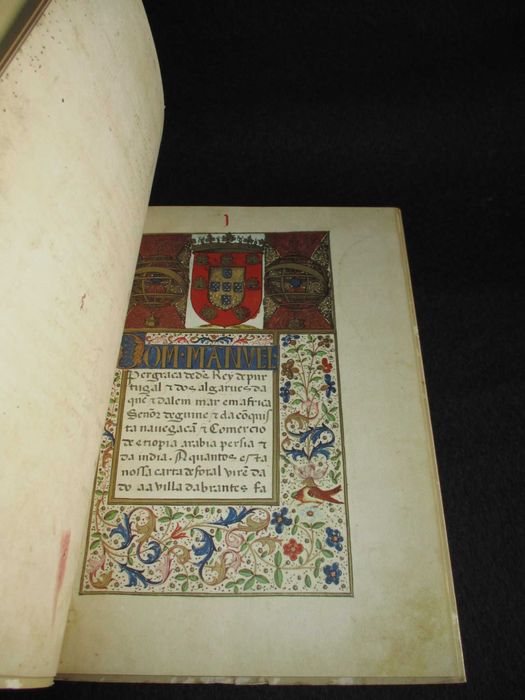 1
DOM·MANVEL
Pergraca dedẽ Rey depur
tugal ⁊ dos algarues da
quẽ ⁊ dalem mar em africa
Senõr deguine ⁊ da cõquis
ta nauegacã ⁊ Comercio
de etiopia arabia persia ⁊
da india. A quantos esta
nossa carta de foral virẽ da
do a a villa dabrantes fa